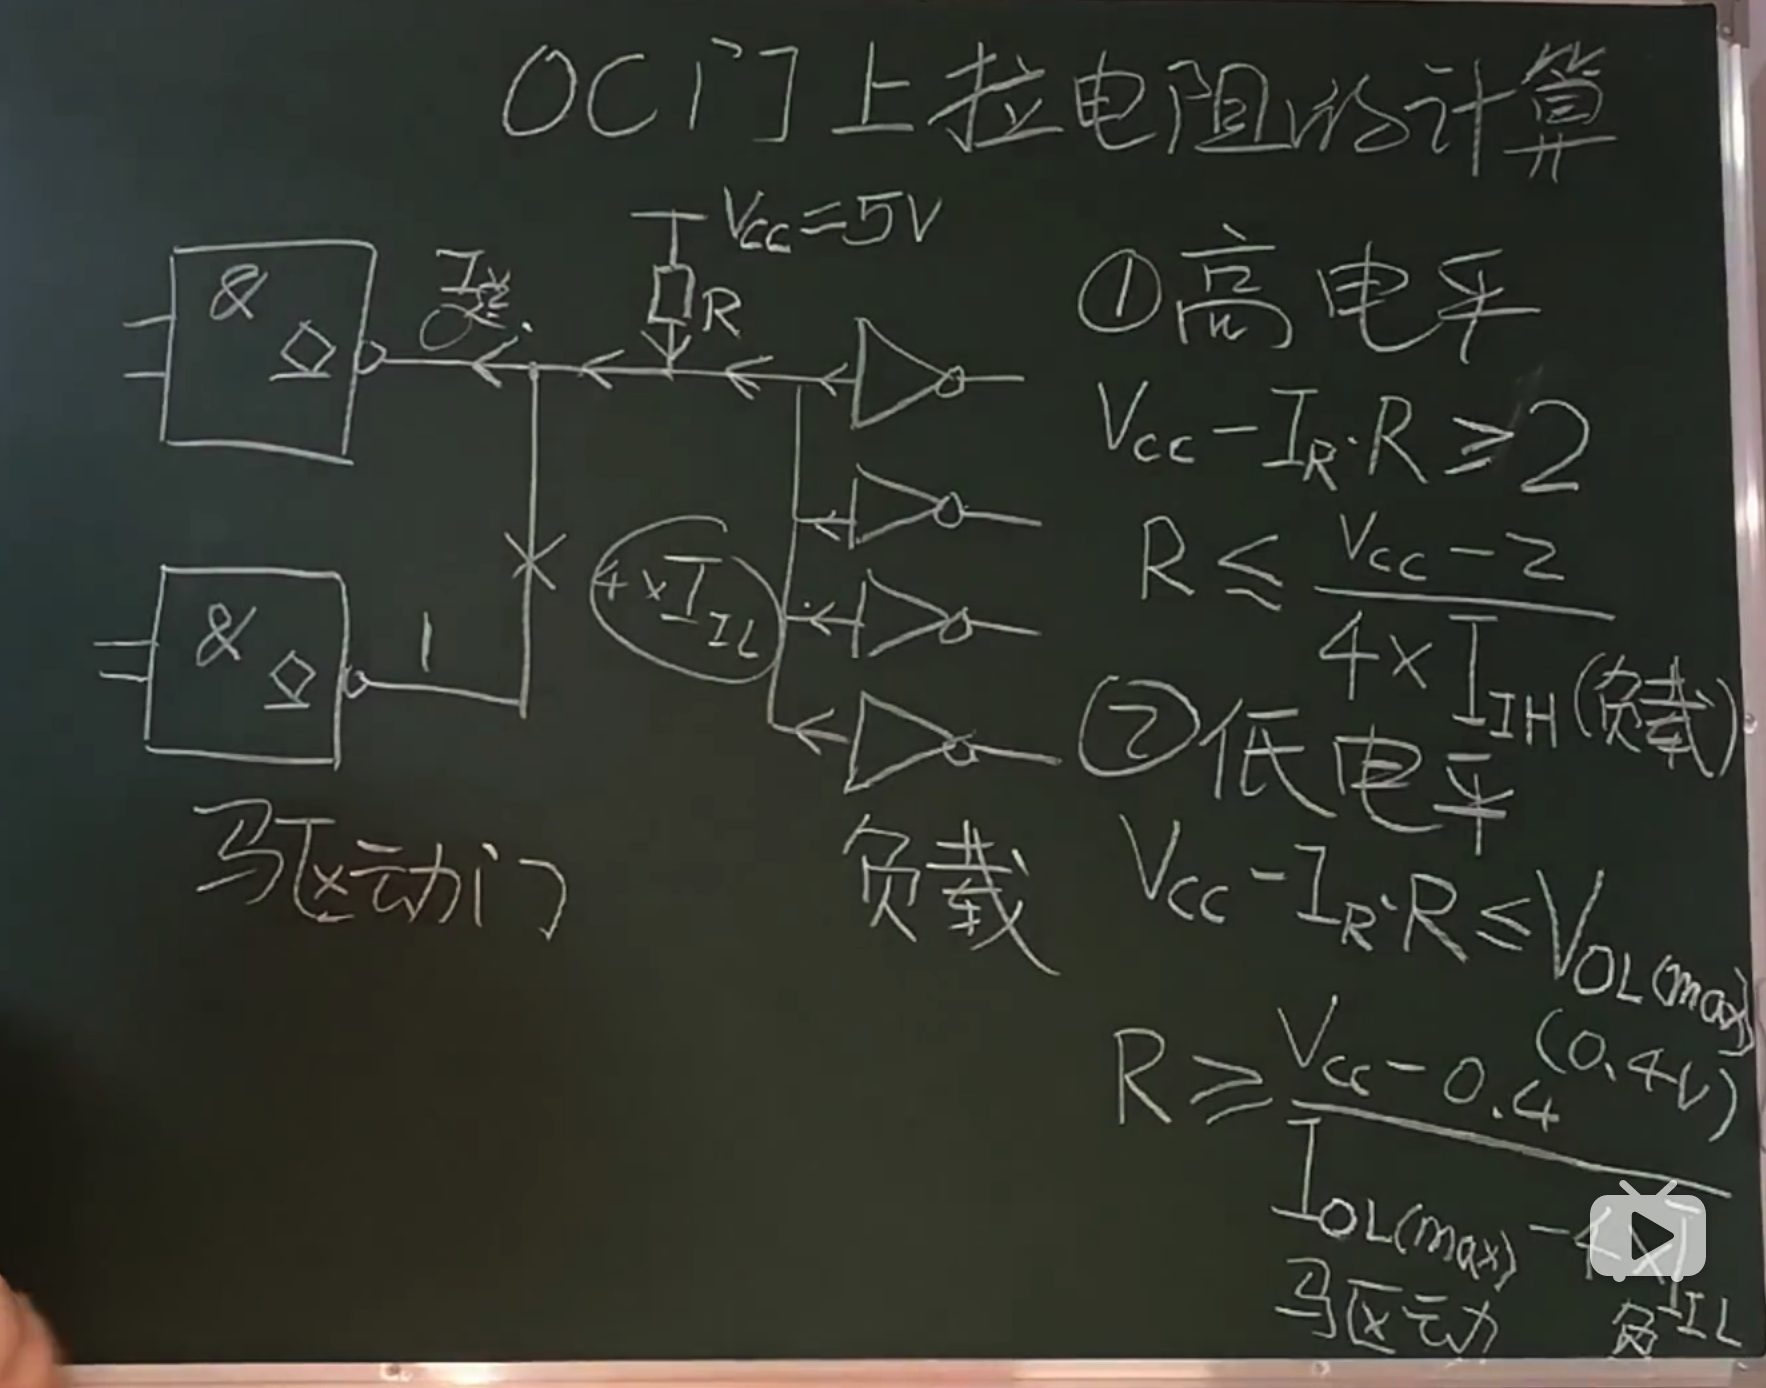 OC门上拉电阻的计算
Vcc=5V
R
&
0
1
&
4×I_IL
驱动门
负载
①高电平
Vcc-I_R·R≥2
R≤(Vcc-2)/(4×I_IH(负载))
②低电平
Vcc-I_R·R≤V_OL(max)
(0.4V)
R≥(Vcc-0.4)/(I_OL(max)-4×I_IL)
驱动 负